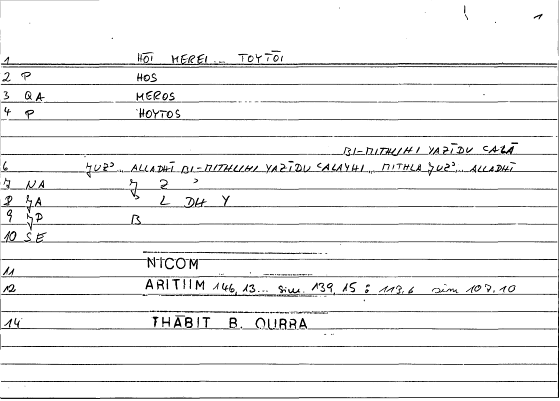 1 HŌI MEREI... TOYTŌI
2 P HOS
3 QA MEROS
4 P HOYTOS
BI-MITHLIHI YAZĪDU CALĀ
6 ǦUZʾ... ALLADHĪ BI-MITHLIHI YAZĪDU CALAYHI... MITHLA ǦUZʾ... ALLADHĪ
7 NA Ǧ Z ʾ
8 ǦA ʾ L DH Y
9 ǦP B
10 SE
11 NICOM
12 ARITIIM 146,13... sim. 139,15 : 113.6 sim 107.10
14 THĀBIT B. QURRA